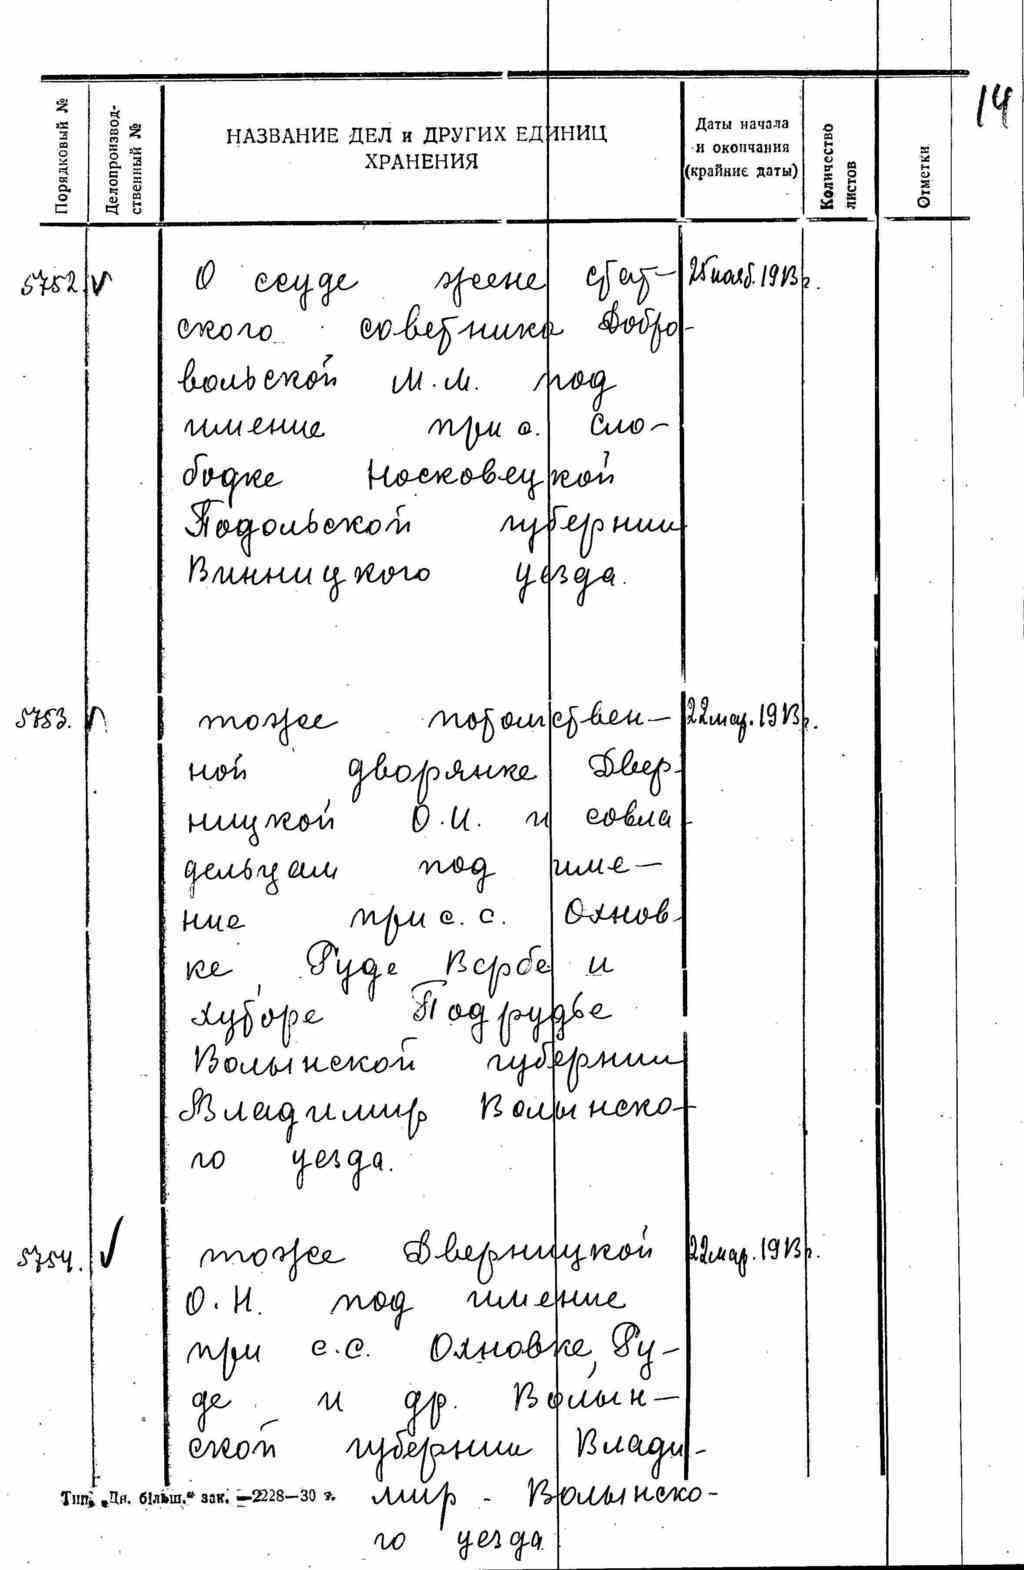 14
Порядковый №
Делопроизвод-
ственный №
НАЗВАНИЕ ДЕЛ и ДРУГИХ ЕДИНИЦ
ХРАНЕНИЯ
Даты начала
и окончания
(крайние даты)
Количество
листов
Отметки
5752. О ссуде жене стат- 25 нояб. 1913 г.
ского советника Добро-
вольской М.М. под
имение при с. Сло-
бодке Носковецкой
Подольской губернии
Винницкого уезда.
5753. тоже потомствен- 22 мар. 1913 г.
ной дворянке Двер-
ницкой О.И. и совла-
дельцам под име-
ние при с.с. Охнов-
ке, Руде, Вербе и
хуторе Подрудье
Волынской губернии
Владимир Волынско-
го уезда.
5754. тоже Дверницкой 22 мар. 1913 г.
О.Н. под имение
при с.с. Охновке, Ру-
де и др. Волын-
ской губернии Влади-
мир - Волынско-
го уезда
Тип. „Дн. більш.“ зак. —2228—30 т.